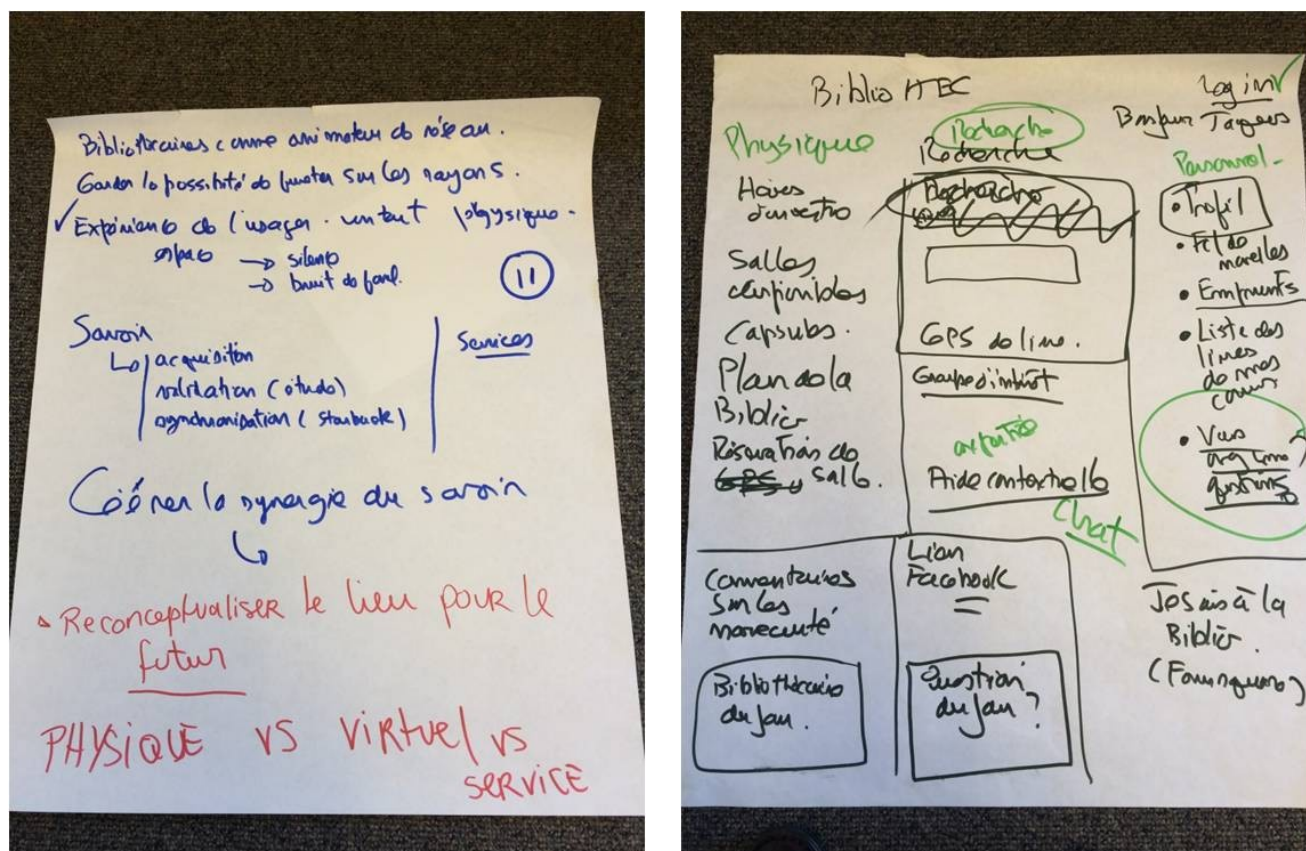 Bibliothécaires comme animateur de réseau.
Garder la possibilité de fureter sur les rayons.
✓ Expérience de l'usager. physique.
espace → silence
→ bruit de fond.
11
Savoir
↳ acquisition
validation (étude)
synchronisation (Starbuck)
Services
Gérer la synergie du savoir
↳
Reconceptualiser le lieu pour le
futur
PHYSIQUE VS VIRTUEL VS
SERVICE
Biblio HEC
Log in ✓
Bonjour Jaques
Physique
Heures
d'ouverture
Salles
disponibles
Capsules.
Plan de la
Biblio
Réservation de
GPS salle.
Recherche
Recherche
Recherche
GPS de livre.
Groupe d'intérêt
Aide contextuelle
Chat
Personnel-
• Profil
• Fil de
nouvelles
• Emprunts
• Liste des
livres
de mes
cours
• Vous
questions
Commentaires
sur les
nouveauté
Bibliothécaire
du jour.
Lien
Facebook
Question
du jour ?
Je suis à la
Biblio.
(Foursquare)